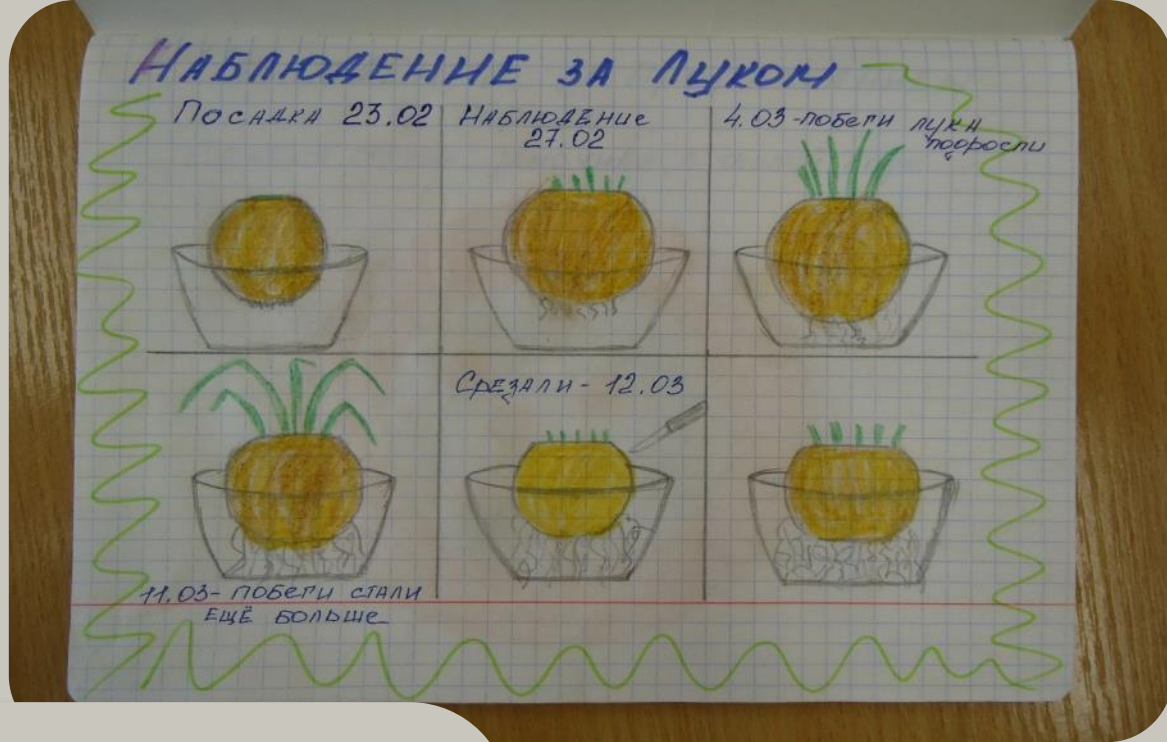 НАБЛЮДЕНИЕ ЗА ЛУКОМ
ПОСАДКА 23.02
НАБЛЮДЕНИЕ
27.02
4.03-побеги лука
подросли
11.03- побеги стали
ЕЩЁ БОЛЬШЕ
СРЕЗАЛИ - 12.03